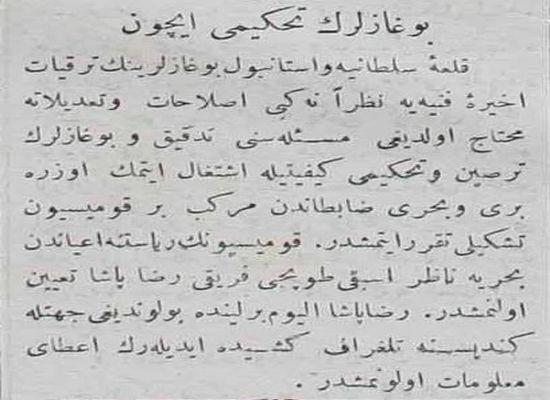 بوغازلرك تحكیمی ایچون
قلعۀ سلطانیه و استانبول بوغازلرینك ترقیات
اخیرۀ فنیه یه نظراً نه كبی اصلاحات وتعدیلاته
محتاج اولدیغی مسئله سنی تدقیق و بوغازلرك
ترصین وتحكیمی كیفیتیله اشتغال ایتمك اوزره
بری وبحری ضابطاندن مركب بر قومیسیون
تشكیلی تقرر ایتمشدر. قومیسیونك ریاستنه اعیاندن
بحریه ناظر اسبقی طوپجی فریقی رضا پاشا تعیین
اولنمشدر. رضا پاشا الیوم برلینده بولوندیغی جهتله
كندیسنه تلغراف كشیده ایدیله رك اعطای
معلومات اولونمشدر .